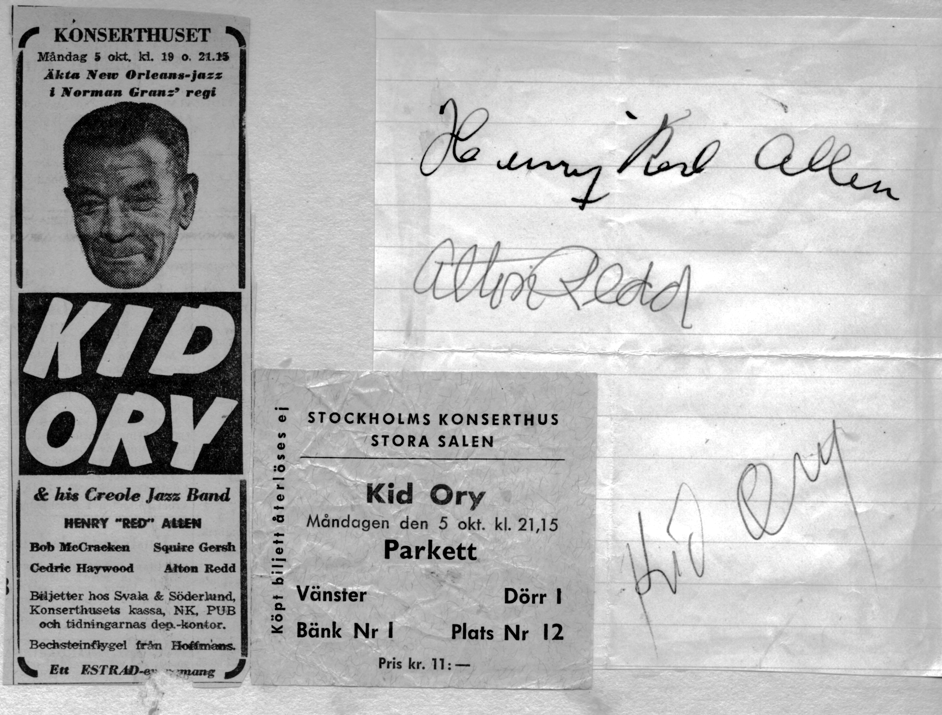 KONSERTHUSET
Måndag 5 okt. kl. 19 o. 21.15
Äkta New Orleans-jazz
i Norman Granz' regi
KID
ORY
& his Creole Jazz Band
HENRY "RED" ALLEN
Bob McCracken Squire Gersh
Cedric Haywood Alton Redd
Biljetter hos Svala & Söderlund,
Konserthusets kassa, NK, PUB
och tidningarnas dep.-kontor.
Bechsteinflygel från Hoffmans.
Ett ESTRAD-
Köpt biljett återlöses ej
STOCKHOLMS KONSERTHUS
STORA SALEN
Kid Ory
Måndagen den 5 okt. kl. 21,15
Parkett
Vänster Dörr 1
Bänk Nr 1 Plats Nr 12
Pris kr. 11:—
Henry "Red Allen
Alton Redd
Kid Ory